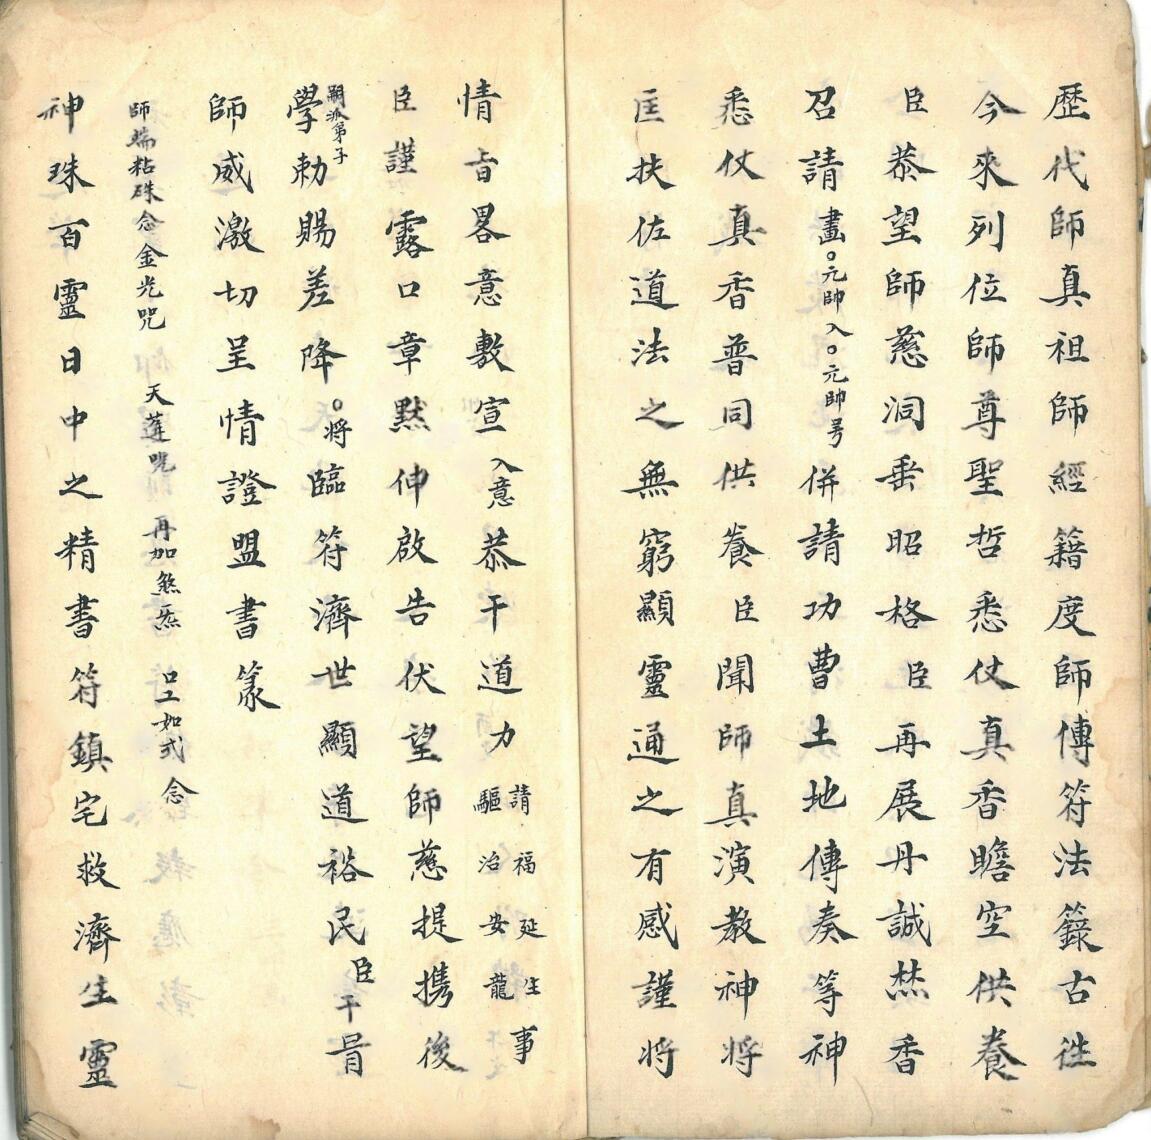 歷代師真祖師經籍度師傳符法籙古徃
今來列位師尊聖哲悉仗真香瞻空供養
臣恭望師慈洞垂昭格臣再展丹誠焚香
召請畫。元帥入。元帥号併請功曹土地傳奏等神
悉仗真香普同供養臣聞師真演教神將
匡扶佐道法之無窮顯靈通之有感謹將
情旨畧意敷宣入意恭干道力請福延生驅治安龍事
臣謹露口章黙伸啟告伏望師慈提携後
學嗣派弟子勅賜差降。將臨符濟世顯道裕民臣干冐
師威激切呈情證盟書篆
師端粘硃念金光咒 天蓬咒 再加煞炁 口工如式 念
神珠百靈日中之精書符鎮宅救濟生靈